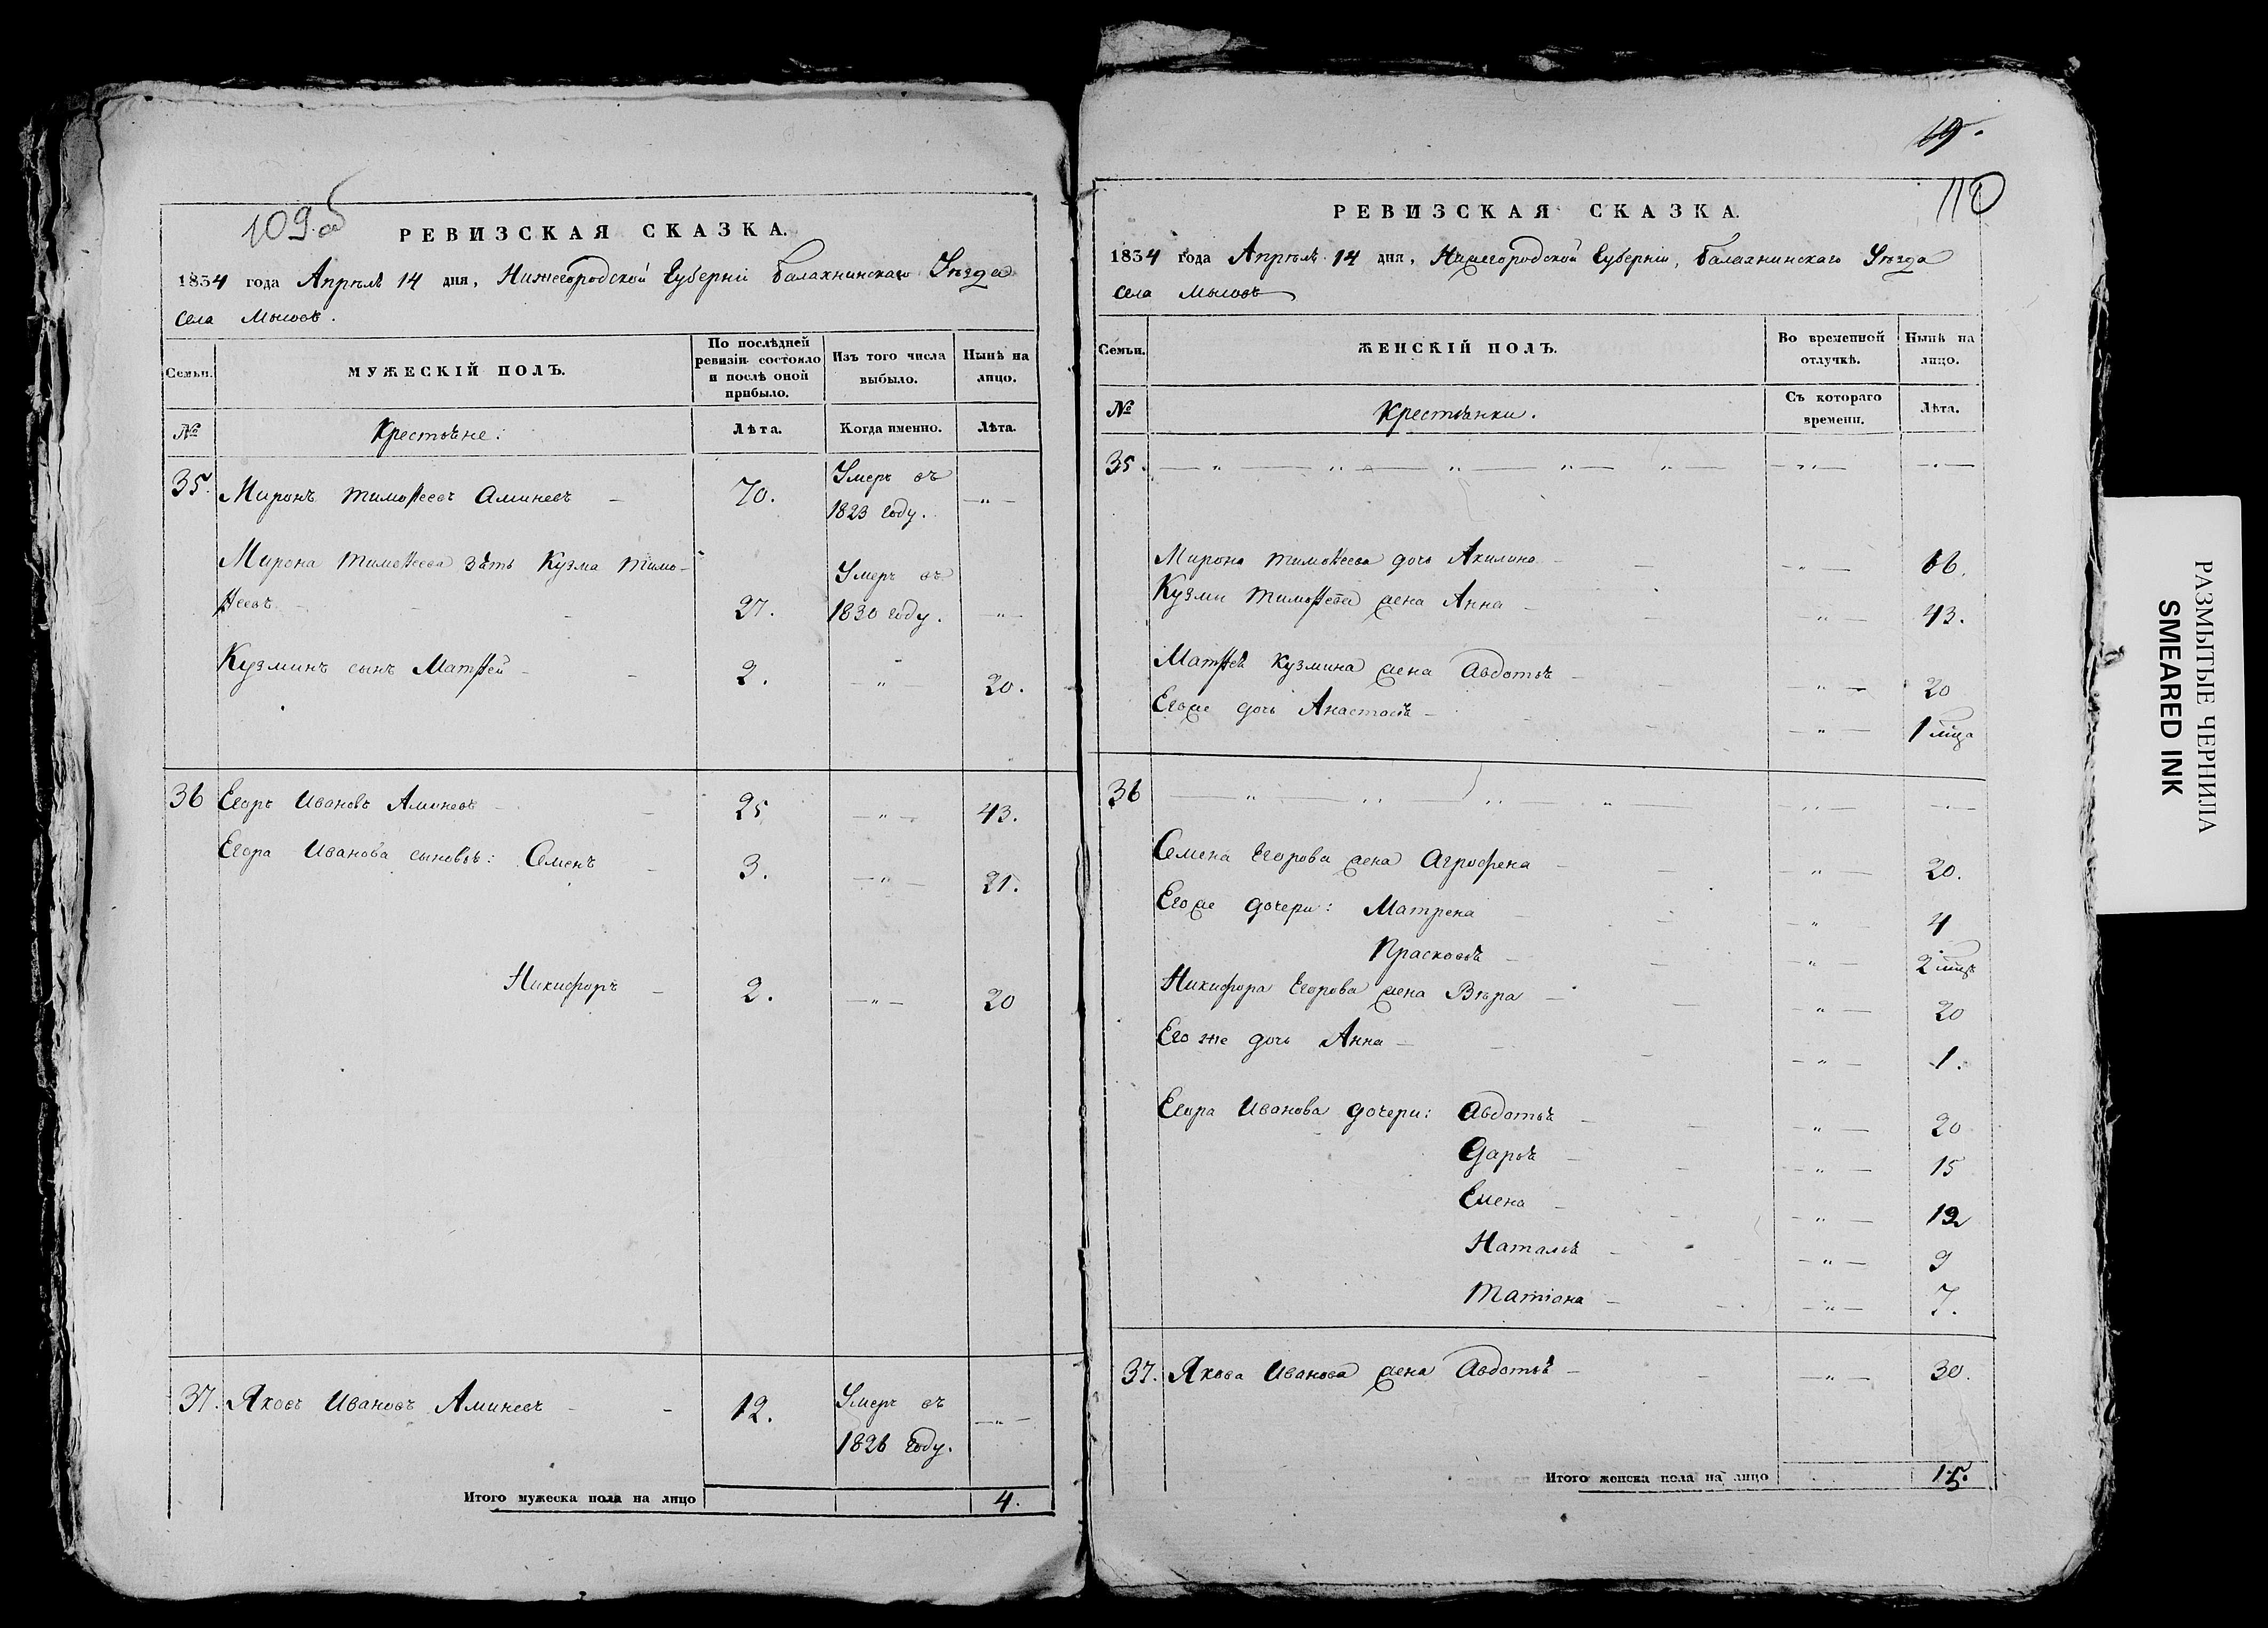 109 об
РЕВИЗСКАЯ СКАЗКА.
1834 года Апрѣлѣ 14 дня, Нижегородской Губерніи Балахнинскаго Уѣзда
села Мысовъ.
Семьи.
МУЖЕСКІЙ ПОЛЪ.
По послѣдней ревизіи состояло и послѣ оной прибыло.
Изъ того числа выбыло.
Нынѣ на лицо.
№
Крестьяне:
Лѣта.
Когда именно.
Лѣта.
35. Миронъ Тимоѳеевъ Аминевъ — 70. Умеръ въ 1823 году. — „ —
Мирона Тимоѳеева зять Кузма Тимо-
ѳеевъ 27. Умеръ въ 1830 году. — „ —
Кузминъ сынъ Матѳей 2. — „ — 20.
36 Егоръ Ивановъ Аминевъ 25 — „ — 43.
Егора Иванова сыновья: Семенъ 3. — „ — 21.
Никифоръ 2. — „ — 20
37. Яковъ Ивановъ Аминевъ — 12. Умеръ въ 1826 году. — „ —
Итого мужеска пола на лицо 4.
19.
110
РЕВИЗСКАЯ СКАЗКА.
1834 года Апрѣлѣ 14 дня, Нижегородской Губерніи, Балахнинскаго Уѣзда
села Мысовъ
Семьи.
ЖЕНСКІЙ ПОЛЪ.
Во временной отлучкѣ.
Нынѣ на лицо.
№
Крестьянки.
Съ котораго времени.
Лѣта.
35. — „ — „ — „ — „ — „ —
Мирона Тимоѳеева дочь Акилина — „ — 66.
Кузмы Тимоѳеева жена Анна — „ — 43.
Матѳея Кузмина жена Авдотья — „ — 20
Егоже дочь Анастасья — „ — 1 мѣца
36 — „ — „ — „ — „ —
Семена Егорова жена Аграфена — „ — 20.
Егоже дочери: Матрена — „ — 4
Прасковья — „ — 2 мѣца
Никифора Егорова жена Вѣра — „ — 20
Его же дочь Анна — „ — 1.
Егора Иванова дочери: Авдотья — „ — 20
Дарья — „ — 15
Елена — „ — 12
Наталья — „ — 9
Татіана — „ — 7.
37. Якова Иванова жена Авдотья — „ — 30.
Итого женска пола на лицо 15.
РАЗМЫТЫЕ ЧЕРНИЛА
SMEARED INK